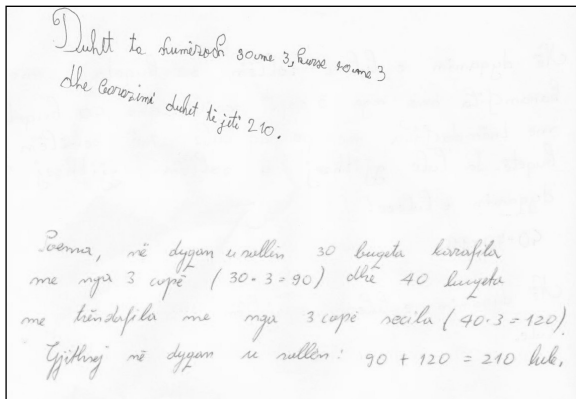 6) Duhet ta shumëzosh 30 me 3, kurse 40 me 3
dhe barazimi duhet të jetë 210.
Poema, në dyqan u sollën 30 buqeta karafila
me nga 3 copë (30·3=90) dhe 40 buqeta
me trëndafila me nga 3 copë secila (40·3=120).
Gjithsej në dyqan u sollën: 90 + 120 = 210 lule.